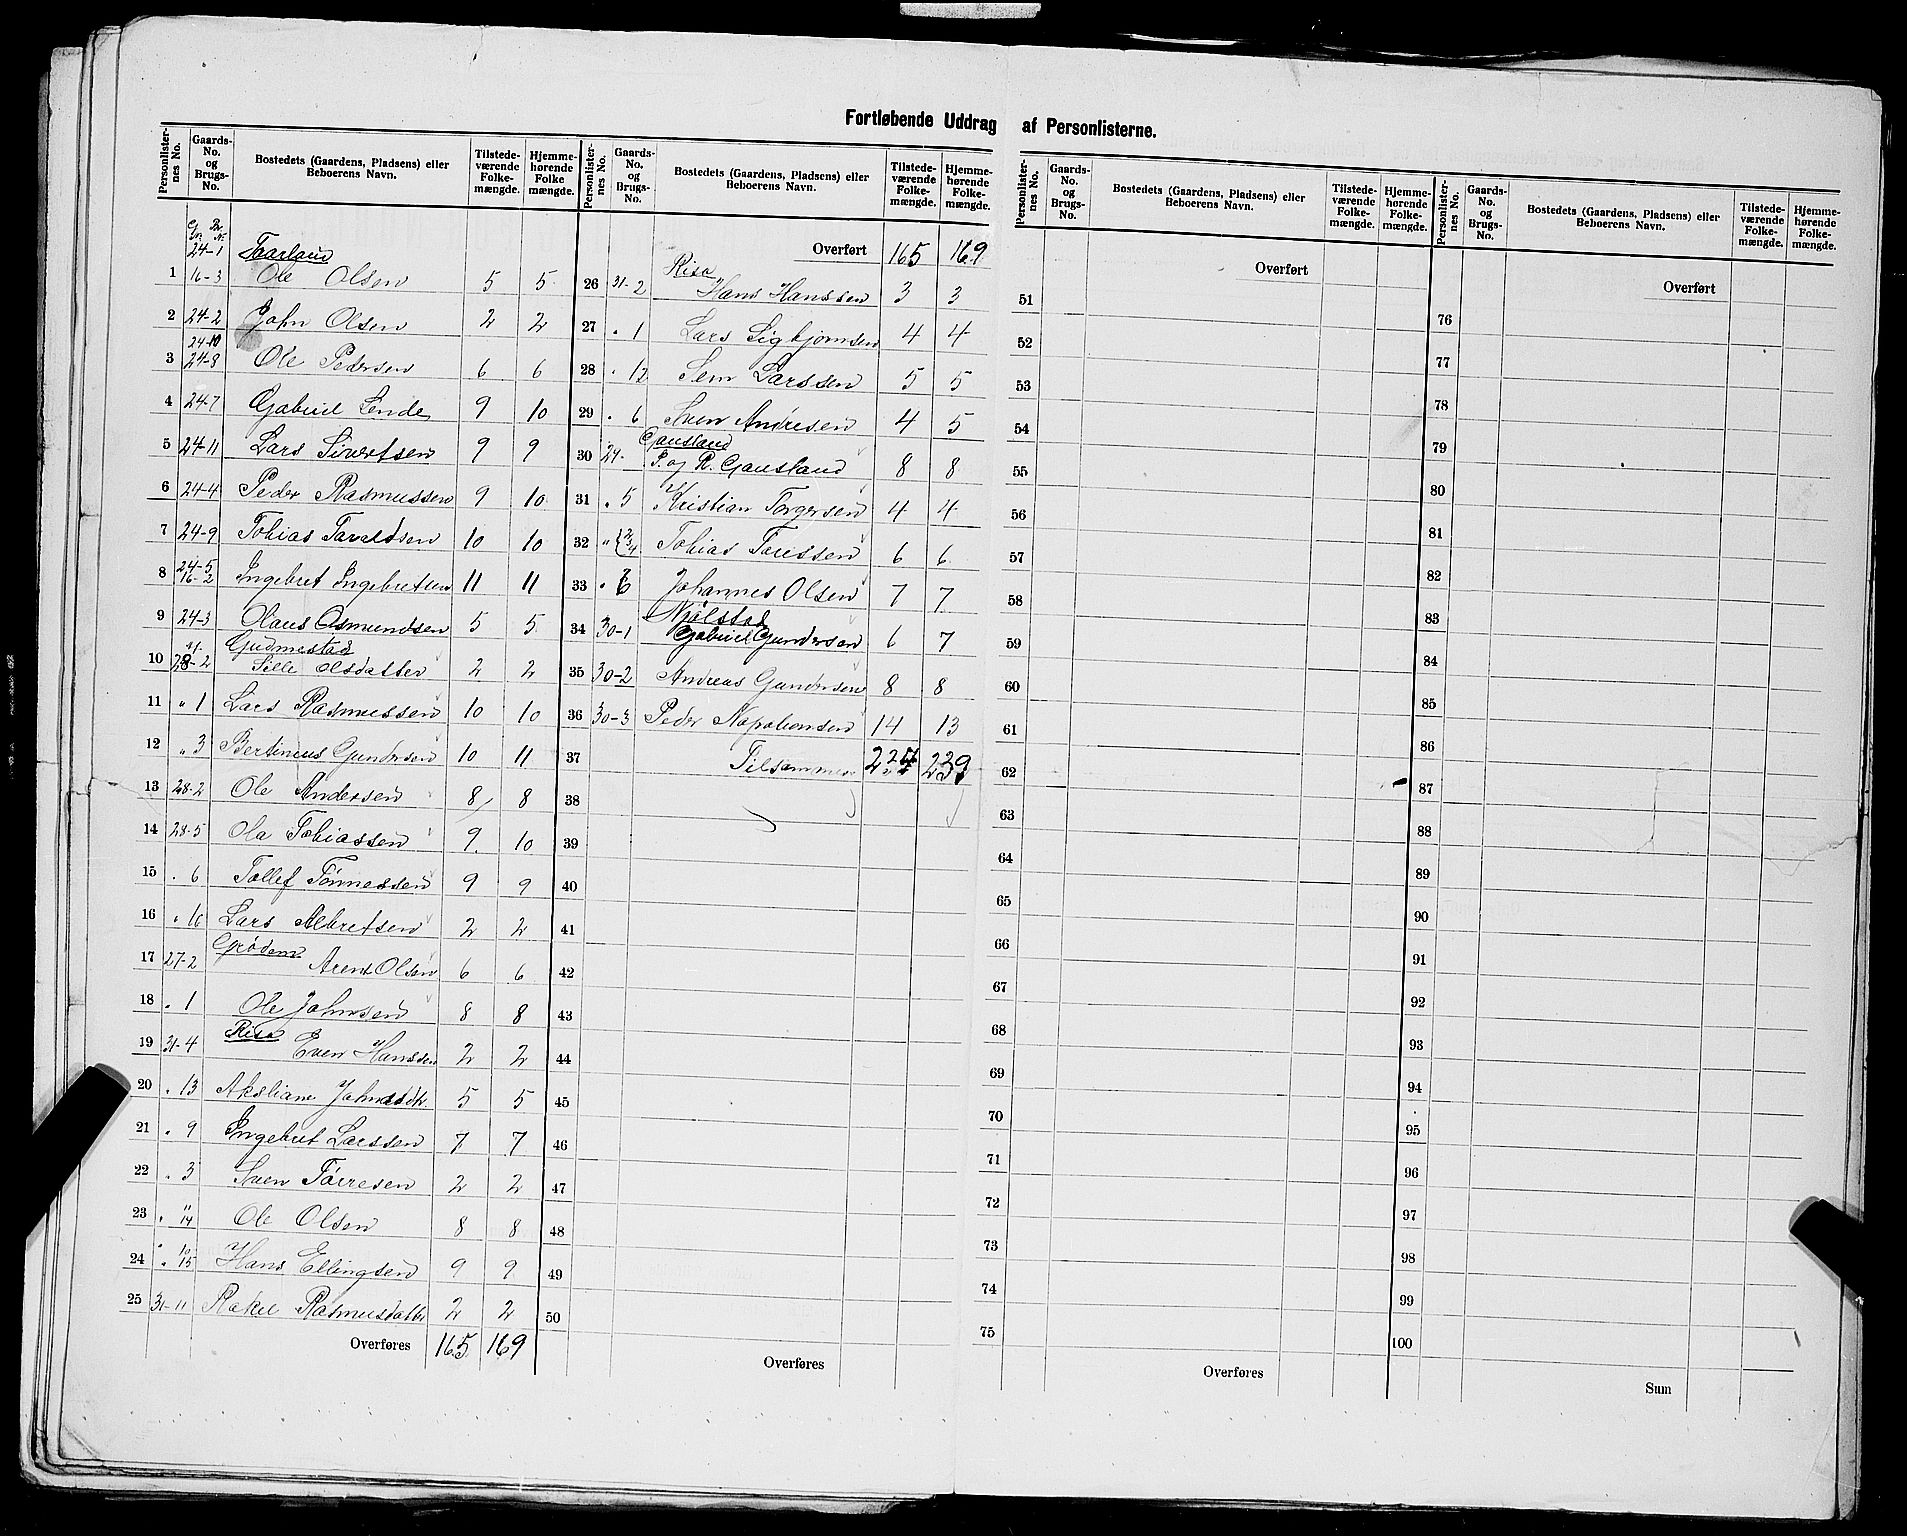 Fortløbende Uddrag af Personlisterne.
Personlisternes No. Gaards-No. og Brugs-No. Bostedets (Gaardens, Pladsens) eller Beboerens Navn. Tilstedeværende Folkemængde. Hjemmehørende Folkemængde.
24-1 Taarland
1 16-3 Ole Olsen 5 5
2 24-2 John Olsen 2 2
24-10
3 24-8 Ole Pedersen 6 6
4 24-7 Gabriel Lende 9 10
5 24-11 Lars Sivertsen 9 9
6 24-4 Peder Rasmussen 9 10
7 24-9 Tobias Taraldsen 10 10
24-5
8 16-2 Ingebret Ingebretsen 11 11
9 24-3 Olaus Asmundsen 5 5
Gudmestad
10 28-2 Sille Olsdatter 2 2
11 " 1 Lars Rasmussen 10 10
12 " 3 Bertineus Gundersen 10 11
13 28-2 Ole Andersen 8 8
14 28-5 Ola Tobiassen 9 10
15 " 6 Tollef Tønnessen 9 9
16 " 6 Lars Albretsen 2 2
Grødem
17 27-2 Arent Olsen 6 6
18 " 1 Ole Johnsen 8 8
Risa
19 31-4 Even Hanssen 2 2
20 " 13 Aksliane Johnsdtr. 5 5
21 " 9 Ingebret Larssen 7 7
22 " 3 Sven Torresen 2 2
23 " 14 Ole Olsen 8 8
10
24 " 15 Hans Ellingsen 9 9
25 31-11 Rakel Rasmusdattr 2 2
Overføres 165 169
Personlisternes No. Gaards-No. og Brugs-No. Bostedets (Gaardens, Pladsens) eller Beboerens Navn. Tilstedeværende Folkemængde. Hjemmehørende Folkemængde.
Overført 165 169
Risa
26 31-2 Hans Hanssen 3 3
27 " 1 Lars Sigbjørnsen 4 4
28 " 12 Sem Larssen 5 5
29 " 6 Sven Andresen 4 5
Gausland
30 29- P. og R. Gausland 8 8
31 " 5 Kristian Torgersen 4 4
32 " 2 3 4 Tobias Toressen 6 6
33 " 6 Johannes Olsen 7 7
Njølstad
34 30-1 Gabriel Gundersen 6 7
35 30-2 Andreas Gundersen 8 8
36 30-3 Peder Napoleonsen 14 13
37 Tilsammen 234 239
38
39
40
41
42
43
44
45
46
47
48
49
50
Overføres
Personlisternes No. Gaards-No. og Brugs-No. Bostedets (Gaardens, Pladsens) eller Beboerens Navn. Tilstedeværende Folkemængde. Hjemmehørende Folkemængde.
Overført
51
52
53
54
55
56
57
58
59
60
61
62
63
64
65
66
67
68
69
70
71
72
73
74
75
Overføres
Personlisternes No. Gaards-No. og Brugs-No. Bostedets (Gaardens, Pladsens) eller Beboerens Navn. Tilstedeværende Folkemængde. Hjemmehørende Folkemængde.
Overført
76
77
78
79
80
81
82
83
84
85
86
87
88
89
90
91
92
93
94
95
96
97
98
99
100
Sum